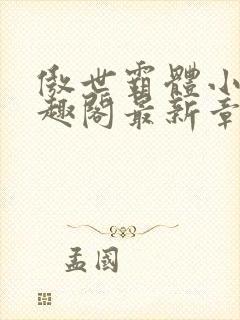 傲世霸體小
趣閣最新章
孟國